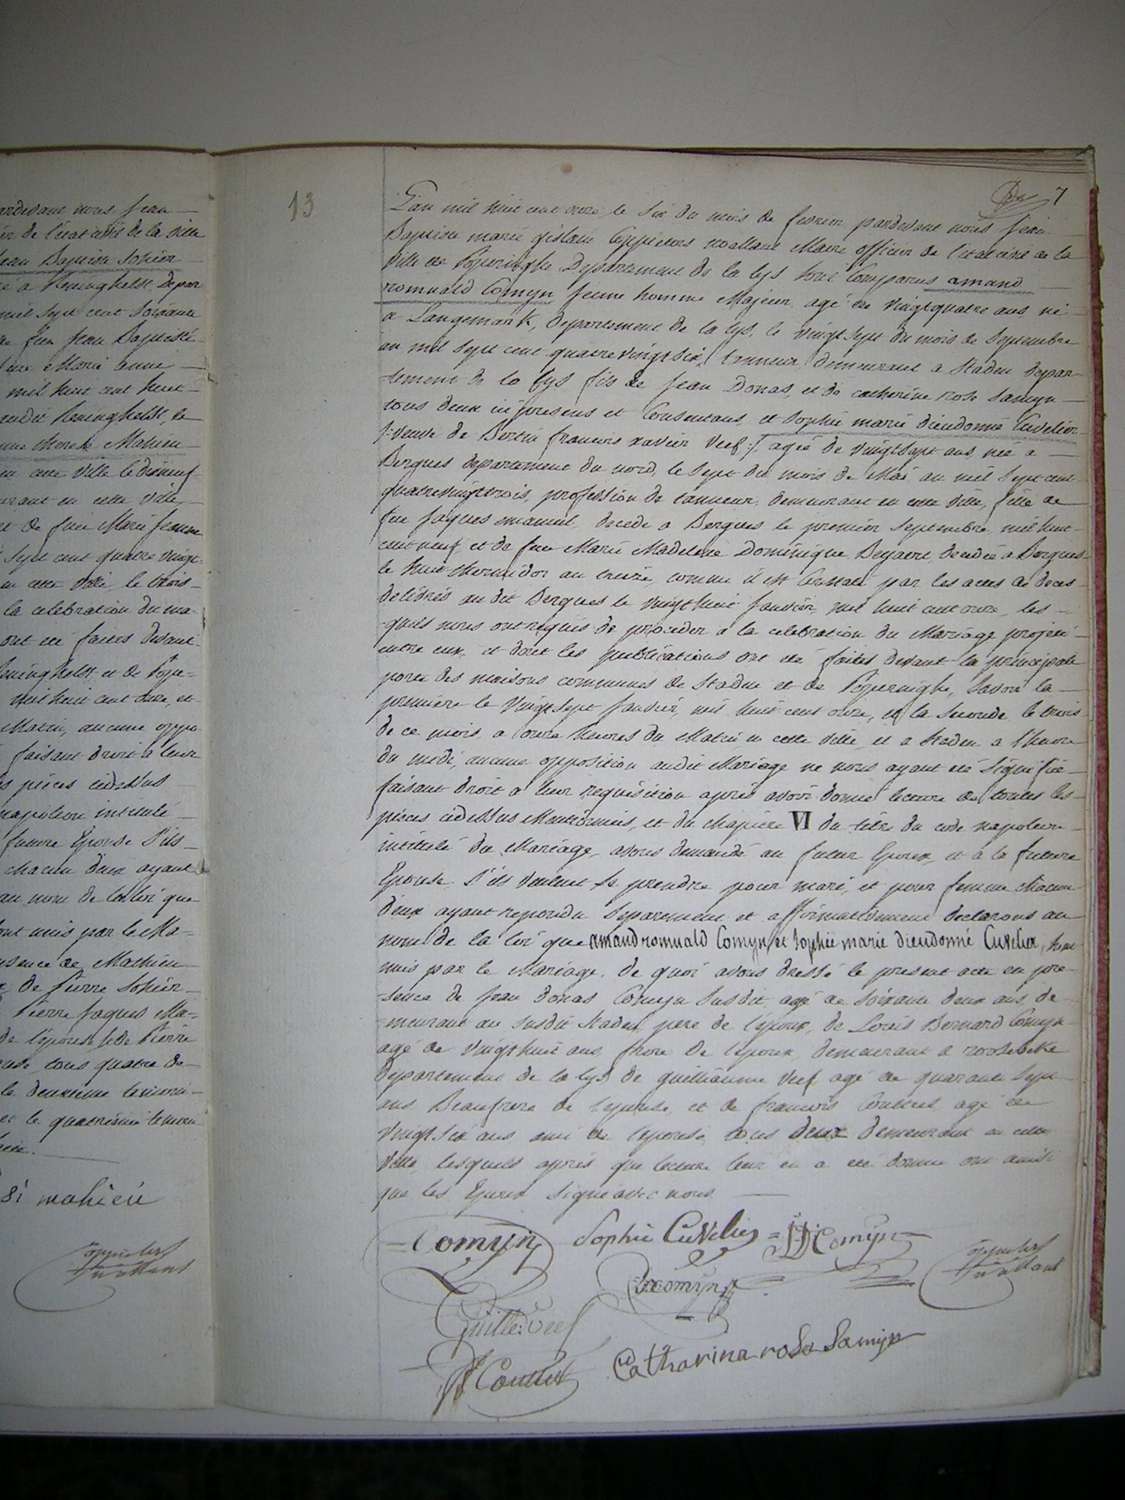 pardevant nous Jean
de l'etat civil de la ville
Jean Baptiste Sohier
né a Reninghelst, depar
mil sept cent soixante
de feu Jean Baptiste
Marie Anne
mil huit cent
audit Reninghelst, le
Mahieu
en cette ville le dixneuf
demeurant en cette ville
et de feue Marie
sept cent quatre vingt
en cette ville, le trois
la celebration du ma-
ont été faites devant
Reninghelst et de Pope-
mil huit cent onze, et
Matin, aucune oppo
faisant droit à leur
pièces cidessus
napoleon intitulé
future Epouse s'ils
chacun deux ayant
au nom de la loi que
sont unis par le Ma-
presence de Mathieu
de Pierre Sohier
Pierre Jaques Ma-
de l'epouse de Pierre
tous quatre de-
le deuxieme
et le quatrieme
mahieu
13
7
L'an mil huit cent onze le six du mois de fevrier pardevant nous Jean
Baptiste marie gislain Coppieters wallant Maire officier de l'etat civil de la
ville de Poperinghe Departement de la Lys sont Comparus amand
romuald Comyn jeune homme Majeur agé de vingtquatre ans né
a Langemark, departement de la Lys, le vingt sept du mois de Septembre
an mil sept cent quatre vingt six, tanneur demeurant a Staden depar-
tement de la Lys fils de Jean Donas, et de catherine rose Samyn
tous deux ici presens et Consentans, et Sophie marie dieudonné Cuvelier
veuve de Bertin francois xavier Veef agée de vingt sept ans, née a
Bergues departement du nord, le sept du mois de Mai an mil sept cent
quatrevingttrois, profession de tanneur, demeurant en cette ville, fille de
feu Jaques emanuel decedé a Bergues le premier Septembre mil huit
cent neuf et de feue Marie Madeleine Dominique Beyaert decedée a Bergues
le huit thermidor an treize, comme il est Constaté par les actes de deces
delivrés au dit Bergues le vingt huit Janvier mil huit cent onze, les-
quels nous ont requis de proceder a la celebration du Mariage projetté
entre eux, et dont les publications ont été faites devant la principale
porte des maisons communes de Staden et de Poperinghe, Savoir la
première le vingt sept Janvier, mil huit cent onze, et la Seconde le trois
de ce mois, a onze heures du Matin en cette ville, et a Staden a l'heure
du midi, aucune opposition audit Mariage ne nous ayant été signifiée
faisant droit a leur requisition après avoir donné lecture de toutes les
pièces cidessus Mentionnées, et du chapitre VI du titre du code napoleon
intitulé du Mariage, avons demandé au futur Epoux et à la future
Epouse S'ils veulent se prendre pour mari et pour femme chacun
deux ayant repondu Separement et affirmativement declarons au
nom de la loi que amand romuald Comyn et Sophie marie dieudonné Cuvelier, sont
unis par le Mariage. De quoi avons dressé le present acte en pre-
sence de Jean donas Comyn Susdit agé de Soixante deux ans, de-
meurant au susdit Staden, père de l'epoux, de Louis Bernard Comyn
agé de vingthuit ans, frere de l'epoux demeurant a rooselbeke
departement de la Lys de guilliaume Veef agé de quarante sept
ans Beaufrere de l'epouse, et de francois Couttet agé de
vingt six ans ami de l'epouse, tous deux demeurant en cette
ville, lesquels après que lecture leur en a eté donné ont ainsi
que les Epoux Signé avec nous
Comyn Sophie Cuvelier JD Comyn
Coppieters
wallant
Comyn
Guille Veef
Couttet Catharina rosa Samijn